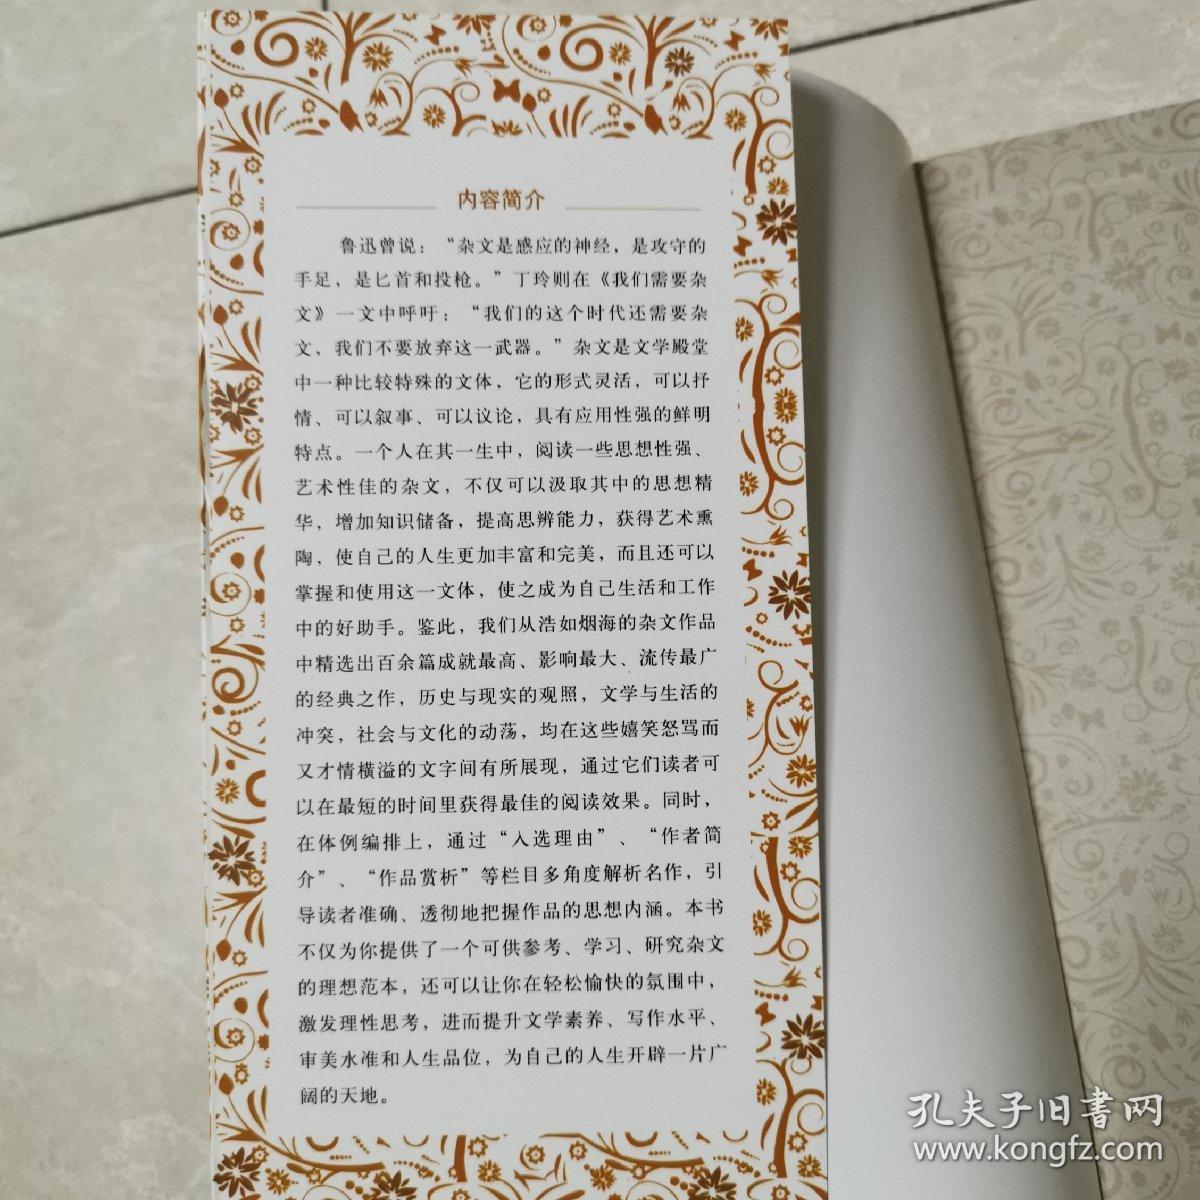 内容简介
鲁迅曾说：“杂文是感应的神经，是攻守的
手足，是匕首和投枪。”丁玲则在《我们需要杂
文》一文中呼吁：“我们的这个时代还需要杂
文，我们不要放弃这一武器。”杂文是文学殿堂
中一种比较特殊的文体，它的形式灵活，可以抒
情、可以叙事、可以议论，具有应用性强的鲜明
特点。一个人在其一生中，阅读一些思想性强、
艺术性佳的杂文，不仅可以汲取其中的思想精
华，增加知识储备，提高思辨能力，获得艺术熏
陶，使自己的人生更加丰富和完美，而且还可以
掌握和使用这一文体，使之成为自己生活和工作
中的好助手。鉴此，我们从浩如烟海的杂文作品
中精选出百余篇成就最高、影响最大、流传最广
的经典之作，历史与现实的观照，文学与生活的
冲突，社会与文化的动荡，均在这些嬉笑怒骂而
又才情横溢的文字间有所展现，通过它们读者可
以在最短的时间里获得最佳的阅读效果。同时，
在体例编排上，通过“入选理由”、“作者简
介”、“作品赏析”等栏目多角度解析名作，引
导读者准确、透彻地把握作品的思想内涵。本书
不仅为你提供了一个可供参考、学习、研究杂文
的理想范本，还可以让你在轻松愉快的氛围中，
激发理性思考，进而提升文学素养、写作水平、
审美水准和人生品位，为自己的人生开辟一片广
阔的天地。
孔夫子旧書网
www.kongfz.com